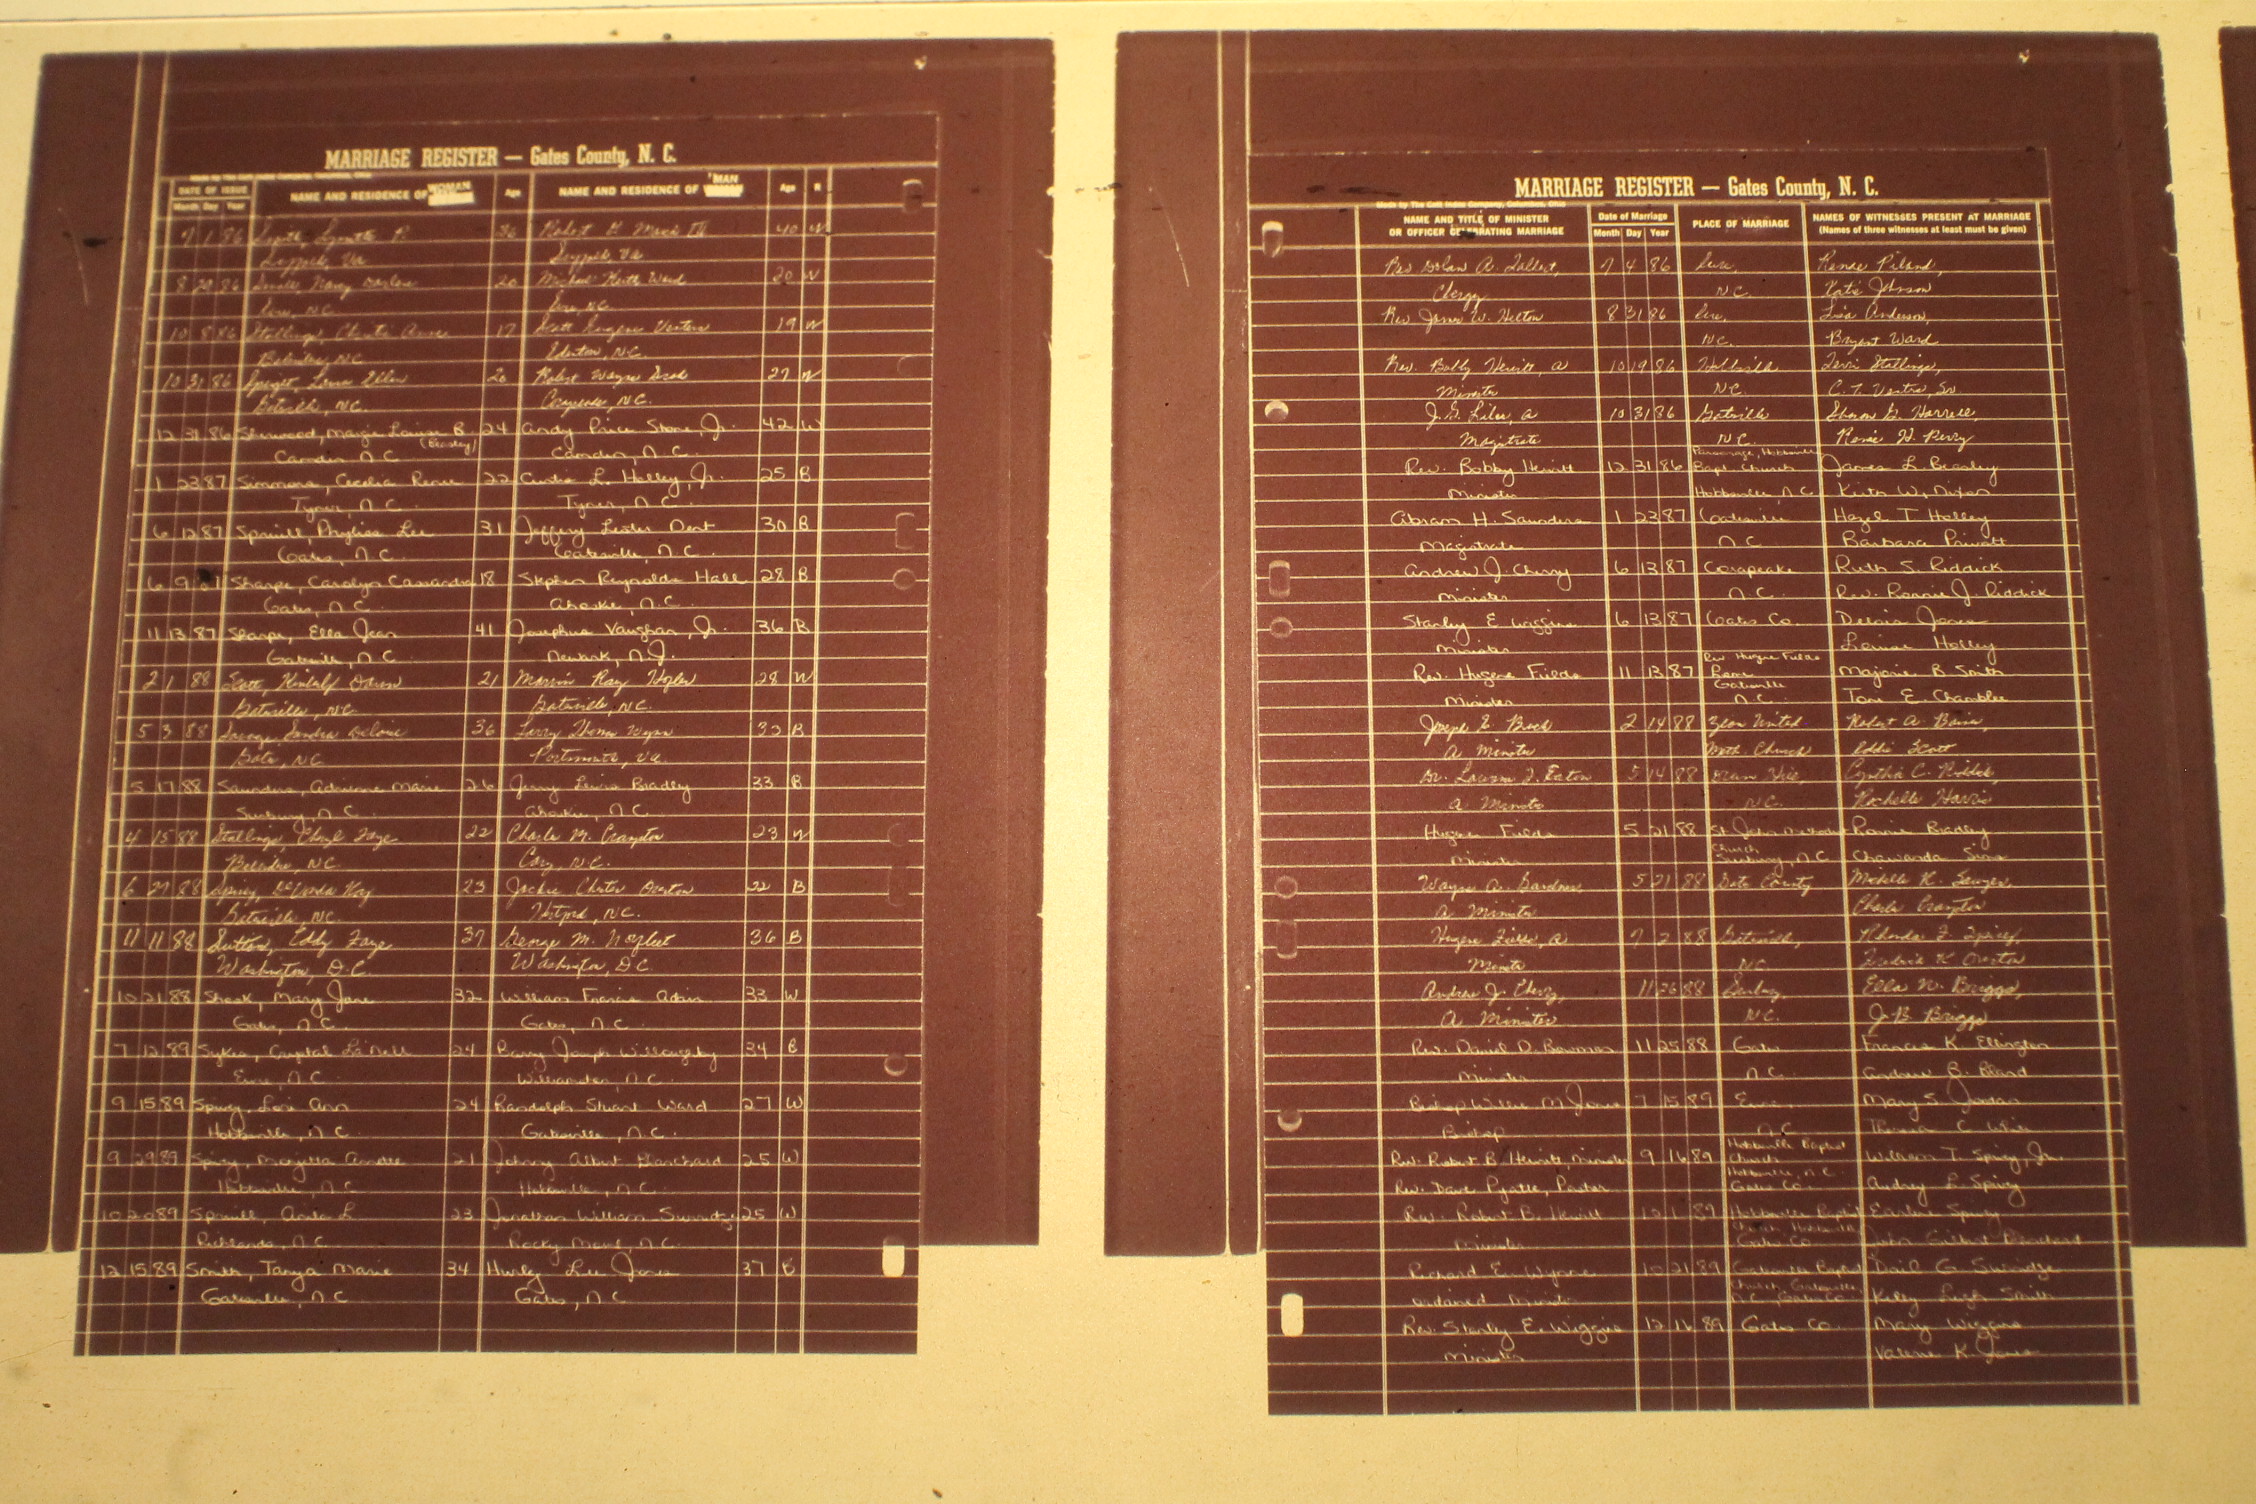 MARRIAGE REGISTER — Gates County, N. C.
DATE OF ISSUE
Month Day Year
NAME AND RESIDENCE OF WOMAN
Age
NAME AND RESIDENCE OF MAN
Age
R
7 1 86 Lynette P. 36 Robert H. III 40 W
Va Va
8 20 86 Nancy Darlene 20 Michael Keith Ward 20 W
NC NC
10 8 86 Stallings, Christi Anne 17 Scott Eugene Venters 19 W
Belvidere, NC Edenton, NC.
10 31 86 Ellen Robert Wayne 27 W
Gatesville, NC. Corapeake, NC.
12 31 86 Sherwood, Margie Louise B. 24 Andy Price Stone, Jr. 42 W
(Beasley)
Camden N.C Camden, N.C.
1 23 87 Simmons, Cecelia Renee 22 Curtis L. Holley, Jr. 25 B
Tyner, N.C. Tyner, N.C.
6 12 87 Spruill, Phyliss Lee 31 Jeffery Lester Dent 30 B
Gates, N.C. Gatesville, N.C.
6 9 Sharpe, Carolyn Cassandra 18 Stephen Reynolds Hall 28 B
Gates, N.C. Ahoskie, N.C.
11 13 87 Sharpe, Ella Jean 41 Josephus Vaughan, Jr. 36 B
Gatesville, N.C. Newark, N.J.
2 1 88 Scott, Kimberly Dawn 21 Marvin Ray 28 W
Gatesville, NC. Gatesville, NC.
5 3 88 Sandra Deloris 36 Larry Thomas B
Gates, NC Portsmouth, Va
5 17 88 Saunders, Adrienne Marie 26 Jerry Lewis Bradley 33 B
Sunbury, N.C Ahoskie, N.C.
4 15 88 Stallings, Cheryl Faye 22 Charles M. Crampton 23 W
Belvidere, NC Cary, NC.
6 27 88 Spivey, Kay 23 Jackie Chester Overton 22 B
Gatesville, NC. Hertford, NC.
11 11 88 Sutton, Eddy Faye 37 George M. Norfleet 36 B
Washington, D.C. Washington, D.C.
10 21 88 Shook, Mary Jane 32 William Francis 33 W
Gates, N.C. Gates, N.C.
7 12 89 Sykes, Crystal La'Nell 24 Joseph Willoughby 34 B
Eure, N.C. Williamston, N.C.
9 15 89 Spivey, Lori Ann 24 Randolph Stuart Ward 27 W
Hobbsville, N.C. Gatesville, N.C.
9 29 89 Spivey, Marjetta 21 Johnny Albert Blanchard 25 W
Hobbsville, N.C. Hobbsville, N.C.
10 20 89 Spruill, Anita L 23 Jonathan William 25 W
Richlands, N.C. Rocky Mount, N.C.
12 15 89 Smith, Tanya Marie 34 Hurley Lee Jones 37 B
Gatesville, N.C Gates, N.C
MARRIAGE REGISTER — Gates County, N. C.
NAME AND TITLE OF MINISTER
OR OFFICER CELEBRATING MARRIAGE
Date of Marriage
Month Day Year
PLACE OF MARRIAGE
NAMES OF WITNESSES PRESENT AT MARRIAGE
(Names of three witnesses at least must be given)
Rev Dolan A. Talbert, 7 4 86 Eure, Renae Piland,
Clergy N.C. Katie Johnson
Rev James W. Helton 8 31 86 Eure, Lisa Anderson,
NC. Bryant Ward
Rev. Bobby Hewitt, a 10 19 86 Hobbsville Terri Stallings,
Minister NC C. T. Venters, Sr.
J. G. Liles, a 10 31 86 Gatesville Sharon G. Harrell,
Magistrate N.C. Renee H. Perry
Parsonage, Hobbsville
Rev. Bobby Hewitt 12 31 86 Bapt. Church James L. Beasley
Minister Hobbsville, N.C Keith W. Nixon
Abram H. Saunders 1 23 87 Gatesville Hazel T. Holley
Magistrate N.C Barbara Privott
Andrew J. Cherry 6 13 87 Corapeake Ruth S. Riddick
Minister N.C. Rev. Ronnie J. Riddick
Stanley E. Wiggins 6 13 87 Gates Co. Delois Jones
Minister Louise Holley
Rev Hugene Fields
Rev. Hugene Fields 11 13 87 Home Marjorie B. Smith
Gatesville
Minister N.C. Toni E. Chamblee
Joseph E. 2 14 88 Zion United Robert A.
A Minister Meth. Church Eddie Scott
Dr. Eaton 5 14 88 Cynthia C.
A Minister N.C. Rochelle Harris
Hugene Fields 5 21 88 St. John Methodist Ronnie Bradley
Church
Minister Sunbury, N.C Chawanda
Wayne A. Gardner 5 21 88 Gates County Michelle R. Sawyer,
A Minister Charles Crampton
Hugene Fields, a 7 2 88 Gatesville, Rhonda F. Spivey,
Minister NC Frederick K Overton
Andrew J. Cherry, 11 26 88 Sunbury Ella N. Briggs,
A Minister NC. J.B. Briggs
Rev. Daniel D. Bowman 11 25 88 Gates Francis K Ellington
Minister N.C. Andrew B. Bland
Bishop Willie M. Jones 7 15 89 Eure, Mary S. Jordan
Bishop N.C Theresa C. White
Rev. Robert B. Hewitt, Minister 9 16 89 Hobbsville Baptist Church William T. Spivey, Jr.
Hobbsville, N.C.
Rev. Dave Pyatte, Pastor Gates Co. Audrey L. Spivey
Rev. Robert B. Hewitt 10 1 89 Hobbsville Baptist Earline Spivey
Church, Hobbsville
Minister Gates Co John Gilbert Blanchard
Richard E. Wynne 10 21 89 Gatesville Baptist Dail G.
Church, Gatesville,
Ordained Minister N.C., Gates Co Kelly Leigh Smith
Rev. Stanley E. Wiggins 12 16 89 Gates Co. Mary Wiggins
Minister Valerie K. Jones